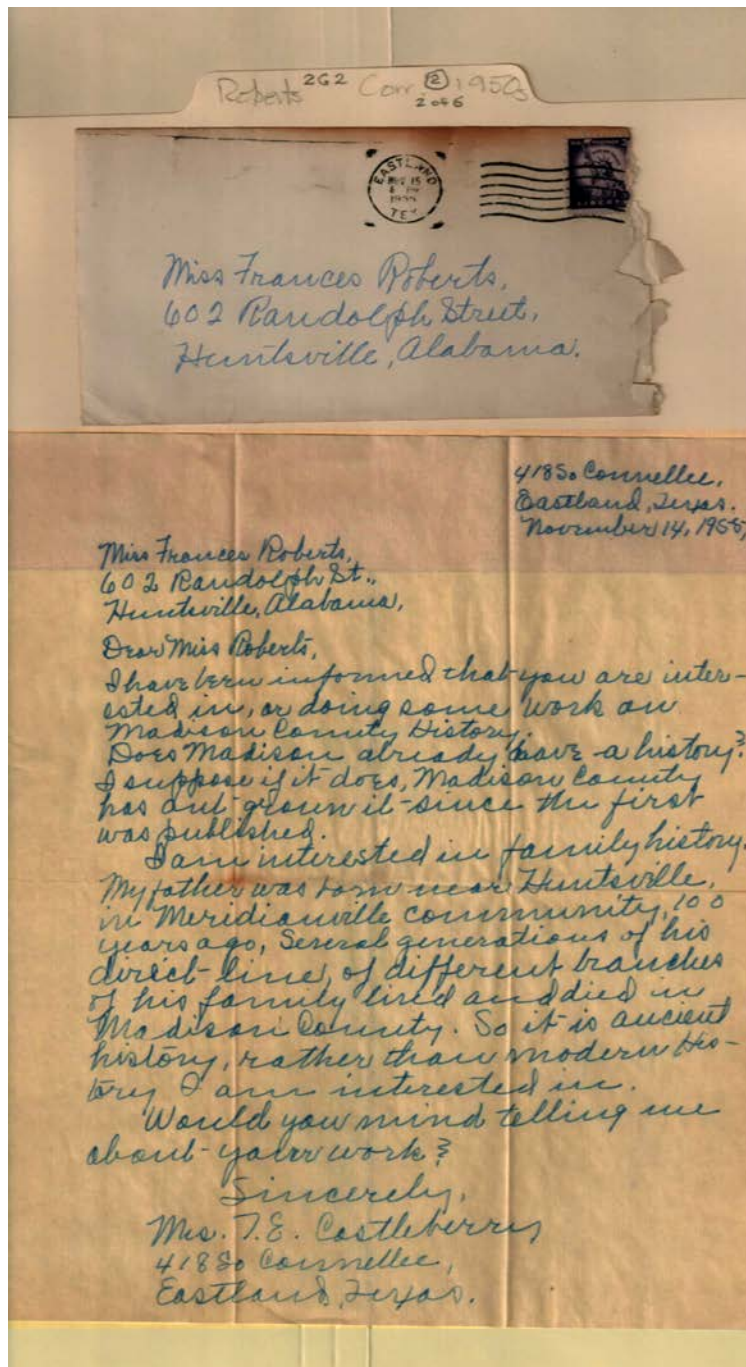 Roberts 2G2 Corr ② 1950s
2 of 6
EASTLAND
15
1955
TEX
Miss Frances Roberts,
602 Randolph Street,
Huntsville, Alabama.
418 So Connellee,
Eastland, Texas.
November 14, 1955,
Miss Frances Roberts,
602 Randolph St.,
Huntsville, Alabama,
Dear Miss Roberts,
I have been informed that you are inter-
ested in, or doing some work on
Madison County History.
Does Madison already have a history?
I suppose if it does, Madison County
has out-grown it since the first
was published.
I am interested in family history.
My father was born near Huntsville,
in Meridianville community, 100
years ago, Several generations of his
direct line, of different branches
of his family lived and died in
Madison County. So it is ancient
history, rather than modern His-
tory I am interested in.
Would you mind telling me
about your work?
Sincerely,
Mrs. T.E. Castleberry
418 So Connellee,
Eastland, Texas.